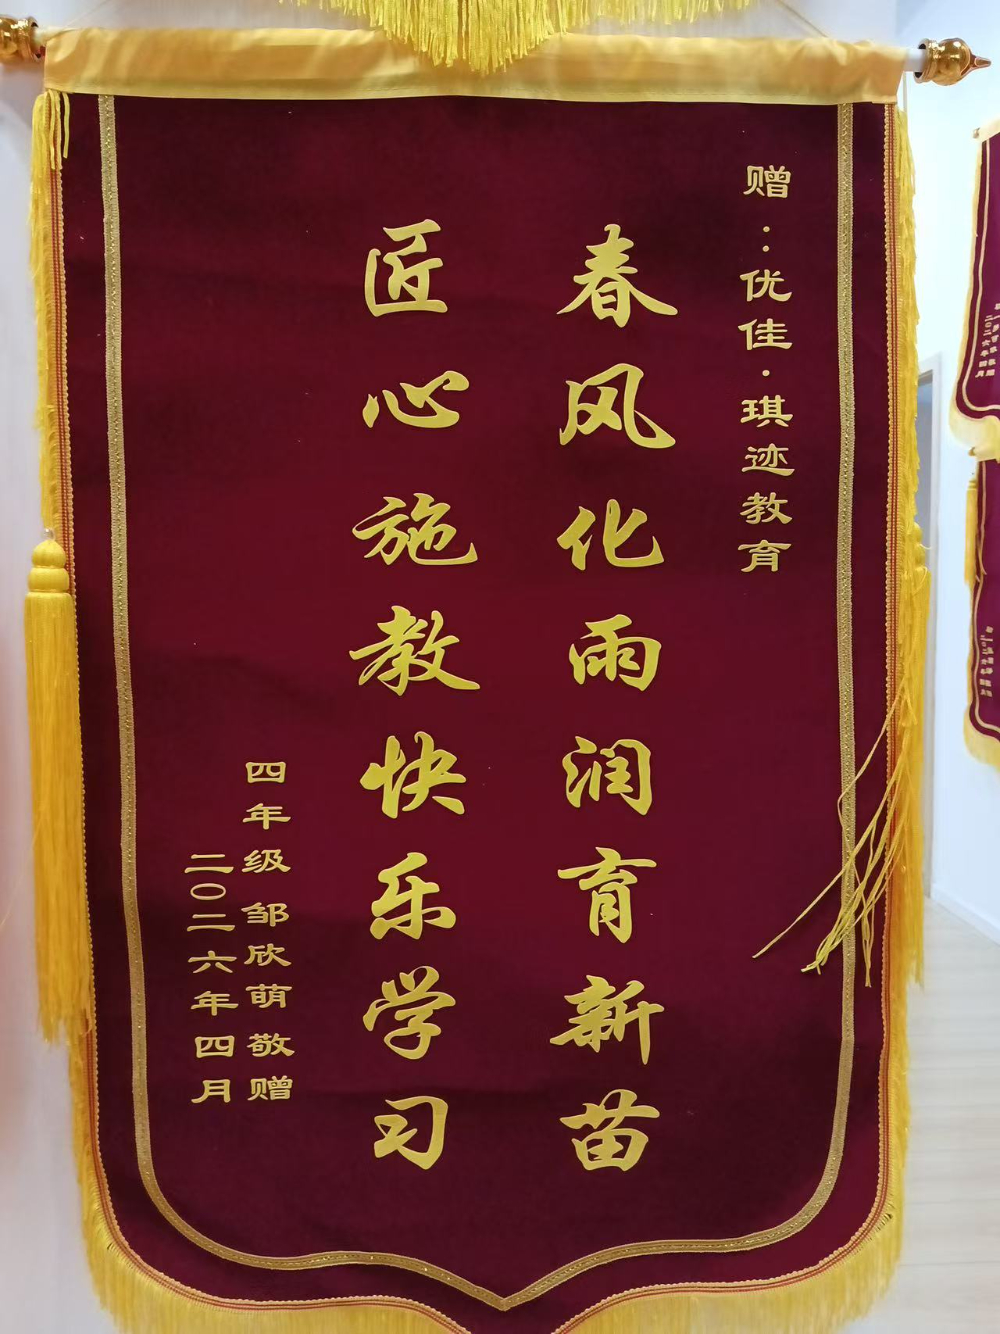 赠：优佳·琪迹教育
春风化雨润育新苗
匠心施教快乐学习
四年级 邹欣萌 敬赠
二〇二六年四月